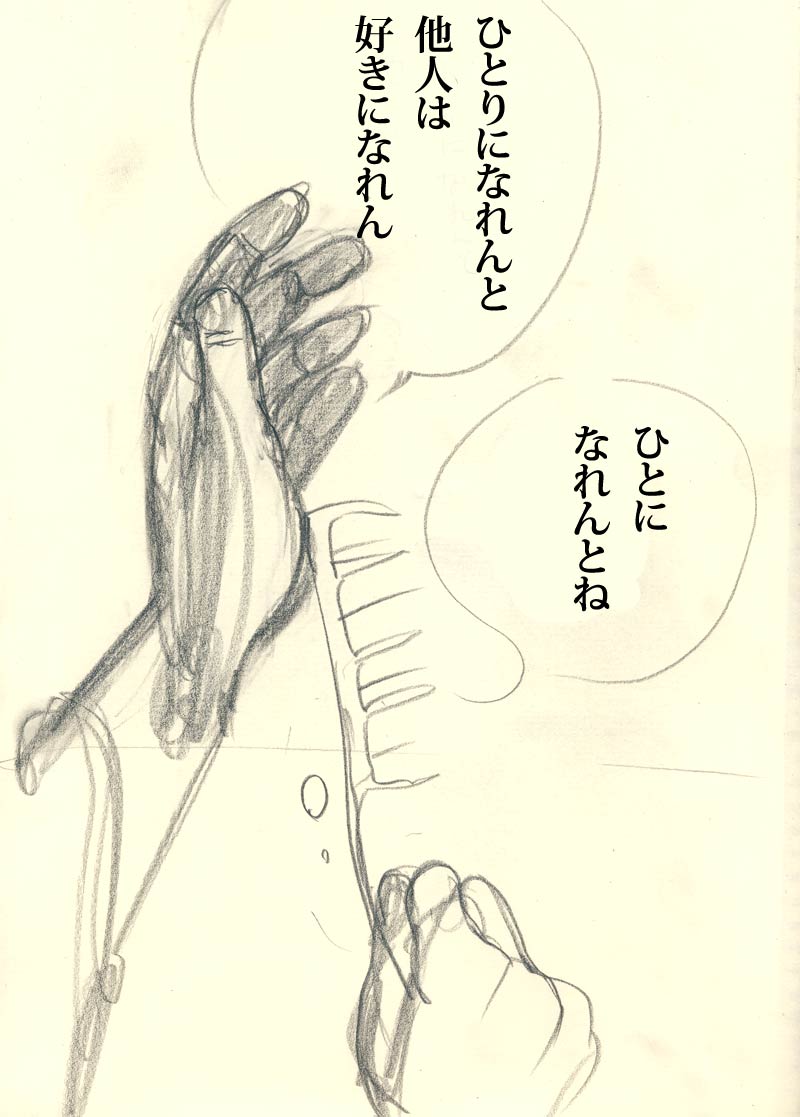 ひとりになれんと
他人は
好きになれん
ひとに
なれんとね